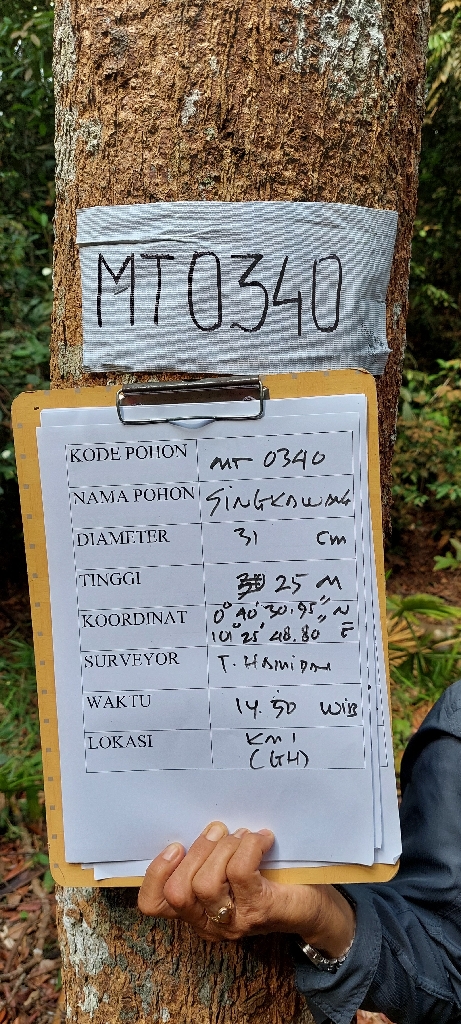 MT0340
KODE POHON MT 0340
NAMA POHON SINGKAWANG
DIAMETER 31 Cm
TINGGI 25 M
KOORDINAT 0° 40' 30.95" N
101° 25' 48.80" E
SURVEYOR T. HAMIDAN
WAKTU 14.50 WIB
LOKASI KM 1
(GH)